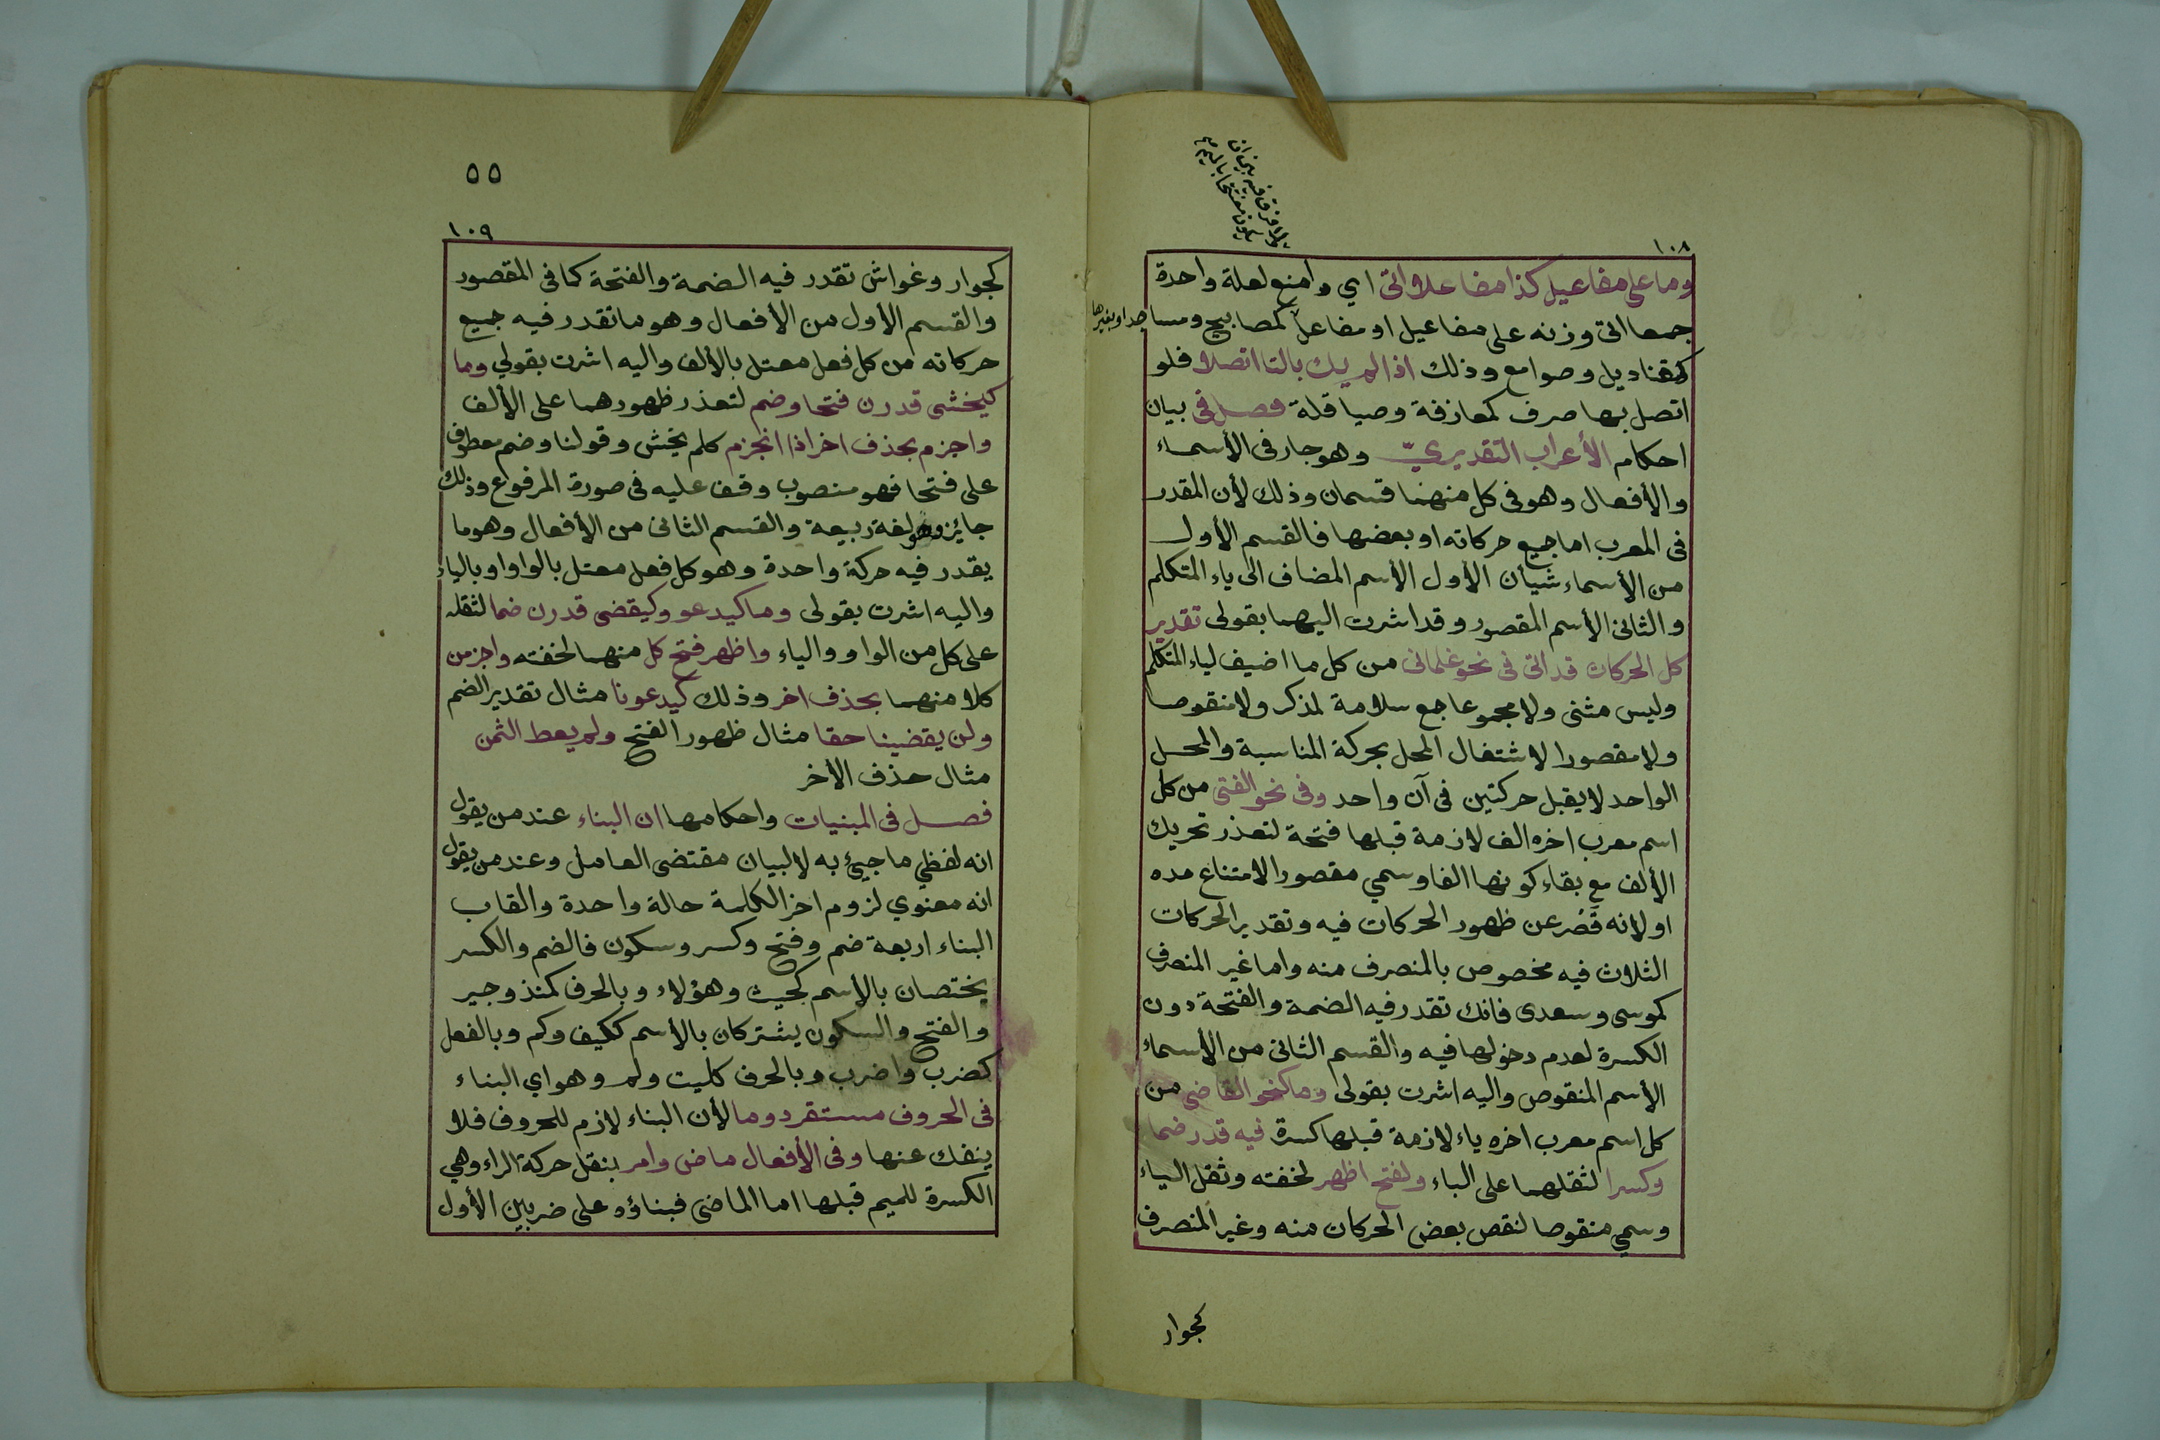 ولا فرق فيه بين ان
يكون مفتتحا بالميم
١٠٨
وما على مفاعيل كذا مفاعلا اتى اي وامنع لعلة واحدة
جمعا اتى وزنه على مفاعيل او مفاعل كمصابيح ومساجد او بغيرها
كقناديل وصوامع وذلك اذا لم يك بالتا اتصلا فلو
اتصل بها صرف كمعازفة وصياقلة فصل فى بيان
احكام الأعراب التقديريّ وهو جار فى الأسماء
والأفعال وهو فى كل منهما قسمان وذلك لأن المقدر
فى المعرب اما جميع حركاته او بعضها فالقسم الأول
من الأسماء شيأن الأول الأسم المضاف الى ياء المتكلم
والثانى الأسم المقصور وقد اشرت اليهما بقولى تقدير
كل الحركات قد اتى فى نحو غلمانى من كل ما اضيف لياء المتكلم
وليس مثنى ولا مجموعا جمع سلامة لمذكر ولا منقوصا
ولا مقصورا لاشتغال المحل بحركة المناسبة والمحل
الواحد لا يقبل حركتين فى آن واحد وفى نحو الفتى من كل
اسم معرب اخره الف لازمة قبلها فتحة لتعذر تحريك
الألف مع بقاء كونها الفا وسمي مقصورا لامتناع مده
او لانه قُصُر عن ظهور الحركات فيه وتقدير الحركات
الثلاث فيه مخصوص بالمنصرف منه واما غير المنصرف
كموسى وسعدى فانك تقدر فيه الضمة والفتحة دون
الكسرة لعدم دخولها فيه والقسم الثانى من الأسماء
الأسم المنقوص واليه اشرت بقولى وما كنحو القاضي من
كل اسم معرب اخره ياء لازمة قبلها كسرة فيه قدر ضما
وكسرا لثقلهما على الياء ولفتح اظهر لخفته وثقل الياء
وسمي منقوصا لنقص بعض الحركات منه وغير المنصرف
كجوار
٥٥
١٠٩
كجوار وغواش تقدر فيه الضمة والفتحة كما فى المقصور
والقسم الأول من الأفعال وهو ما تقدر فيه جميع
حركاته من كل فعل معتل بالألف واليه اشرت بقولي وما
كيخشى قدرن فتحا وضم لتعذر ظهورهما على الألف
واجزم بحذف اخر اذا انجزم كلم يخش وقولنا وضم معطوف
على فتحا فهو منصوب وقف عليه فى صورة المرفوع وذلك
جائز وهو لغة ربيعة والقسم الثانى من الأفعال وهو ما
يقدر فيه حركة واحدة وهو كل فعل معتل بالواو او بالياء
واليه اشرت بقولى وما كيدعو وكيقضى قدرن ضما لثقله
على كل من الواو والياء واظهر فتح كل منهما لخفته واجزمن
كلا منهما بحذف اخر وذلك كيدعونا مثال تقدير الضم
ولن يقضينا حقا مثال ظهور الفتح ولم يعط الثمن
مثال حذف الأخر
فصل فى المبنيات واحكامها ان البناء عند من يقول
انه لفظي ما جيئ به لا لبيان مقتضى العامل وعند من يقول
انه معنوي لزوم اخر الكلمة حالة واحدة والقاب
البناء اربعة ضم وفتح وكسر وسكون فالضم والكسر
يختصان بالأسم كحيث وهؤلاء وبالحرف كمنذ وجير
والفتح والسكون يشتركان بالأسم ككيف وكم وبالفعل
كضرب واضرب وبالحرف كليت ولم وهو اي البناء
فى الحروف مستقر دوما لأن البناء لازم للحروف فلا
ينفك عنها وفى الأفعال ماض وامر بنقل حركة الراء وهي
الكسرة للميم قبلها اما الماضى فبناؤه على ضربين الأول